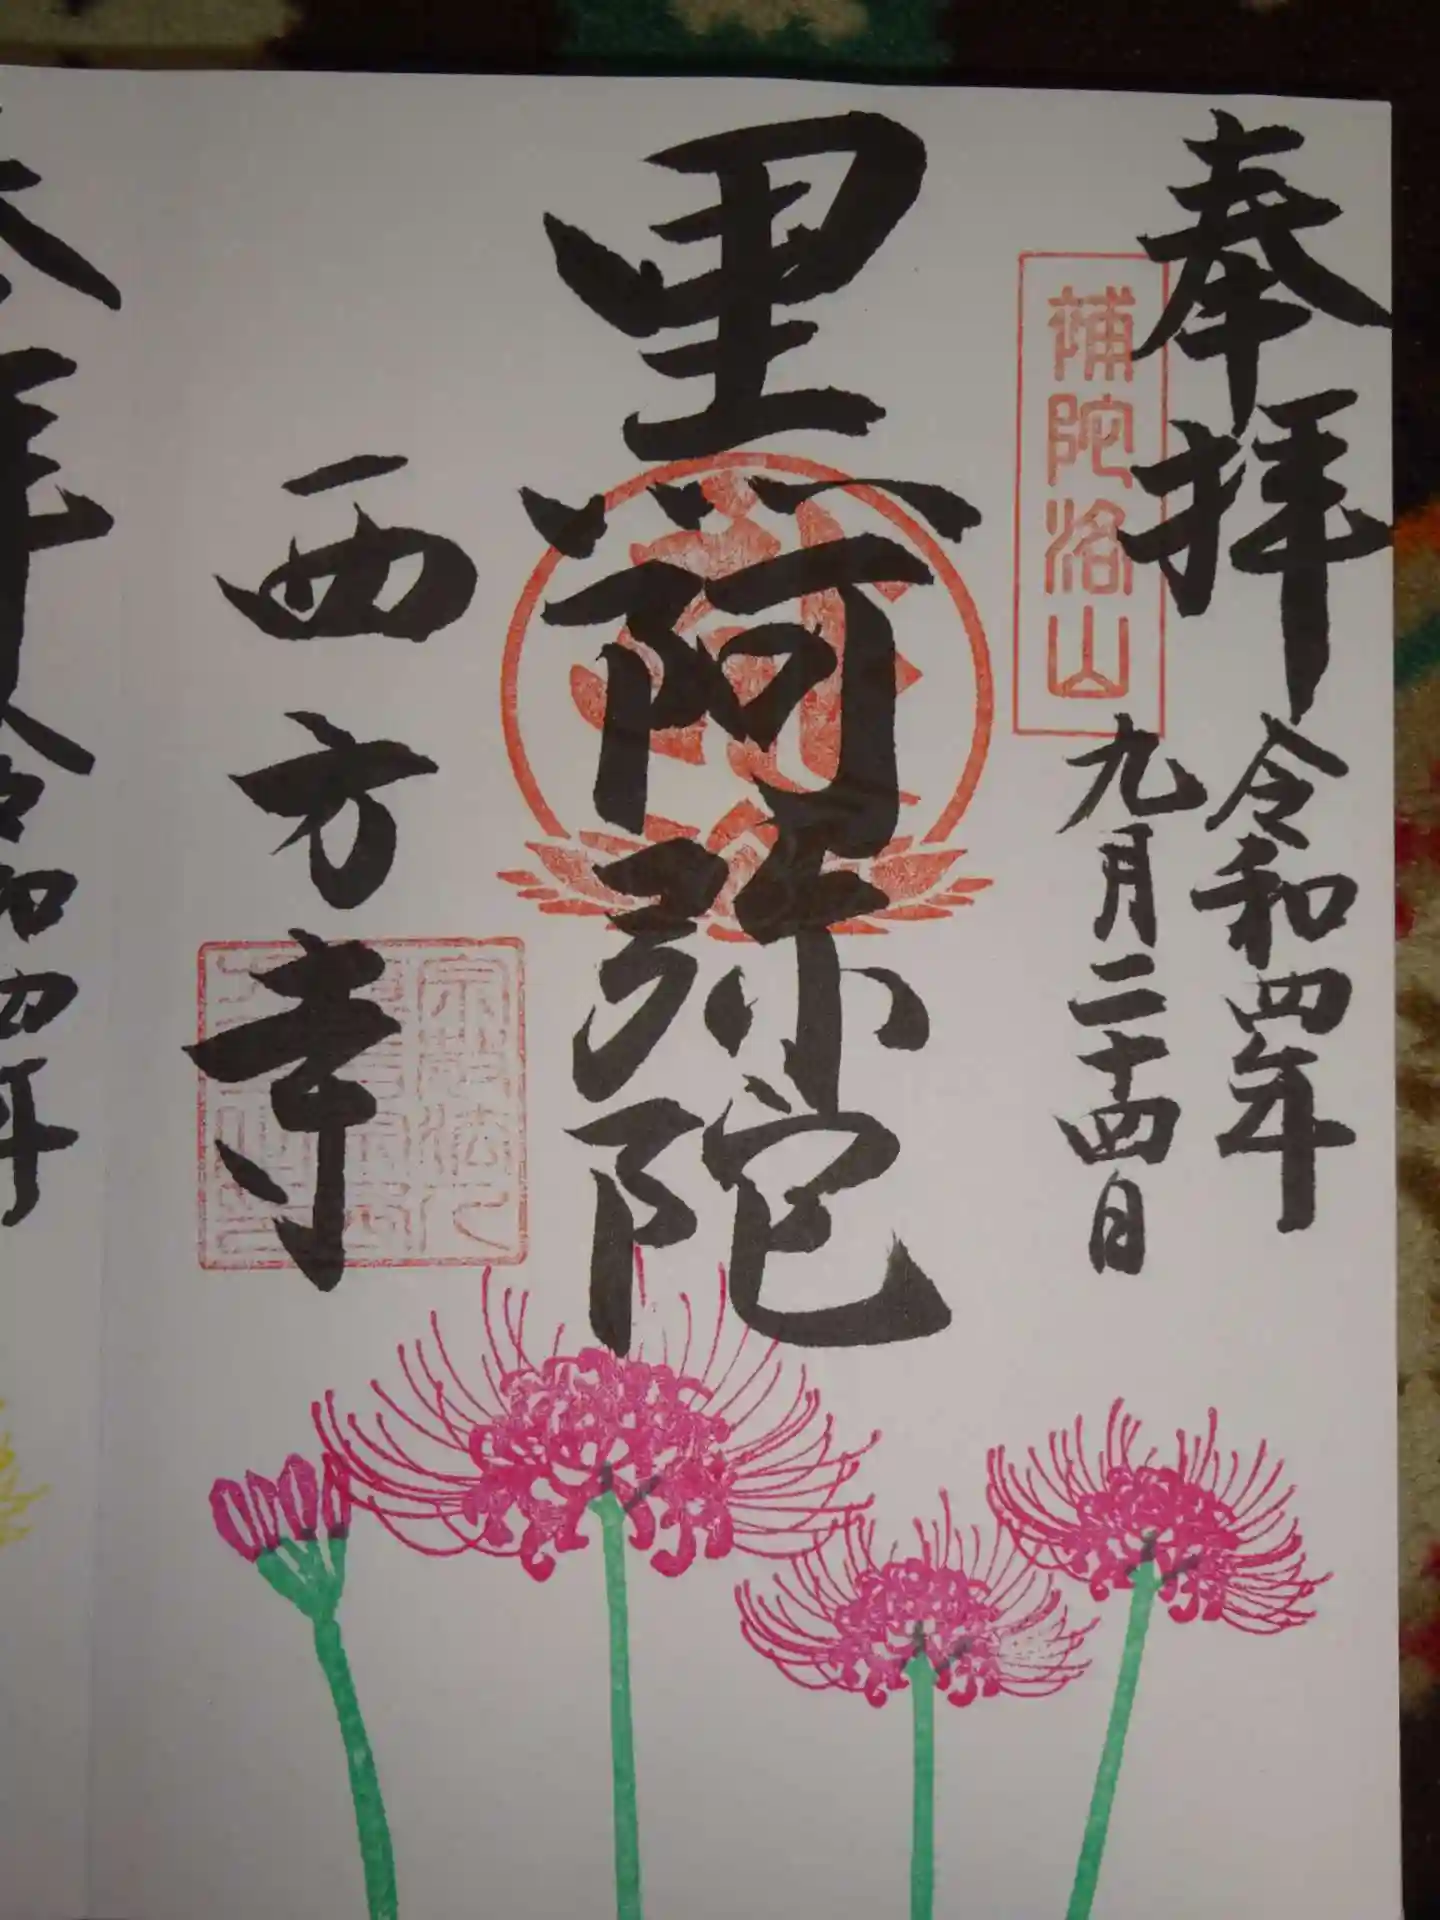 奉拝
補陀洛山
令和四年
九月二十四日
黒阿弥陀
西方寺
宗教法人
拝
令和四年